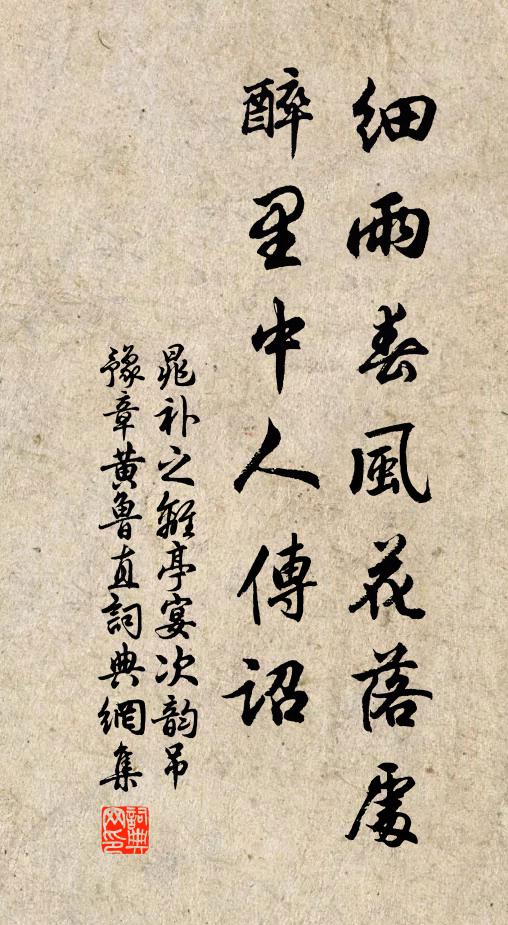 細雨春風花落處
醉里中人傳詔
晁補之離亭宴次韵吊
豫章黄魯直詞典網集
詞典网印